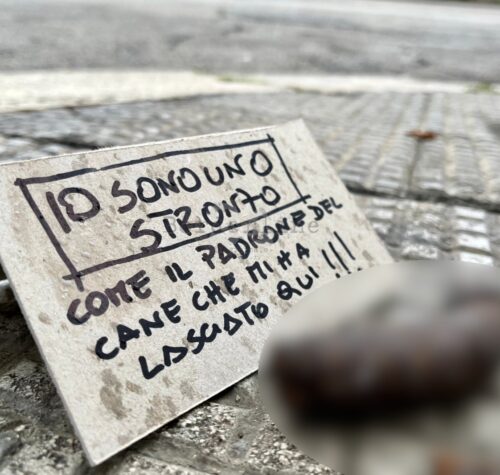 IO SONO UNO
STRONZO
COME IL PADRONE DEL
CANE CHE MI HA
LASCIATO QUI!!!